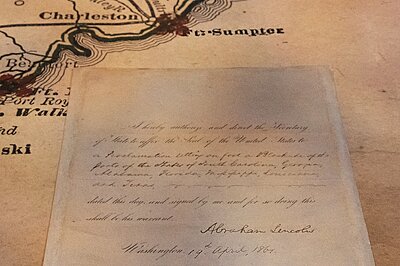 Charleston
Ft. Sumpter
Beaufort
Port Roy
Walk
nd
ski
I hereby authorize and direct the Secretary
of State to affix the Seal of the United States to
a Proclamation setting on foot a Blockade of the
ports of the States of South Carolina, Georgia,
Alabama, Florida, Mississippi, Louisiana
and Texas
dated this day, and signed by me and for so doing this
shall be his warrant.
Abraham Lincoln
Washington, 19th April, 1861.